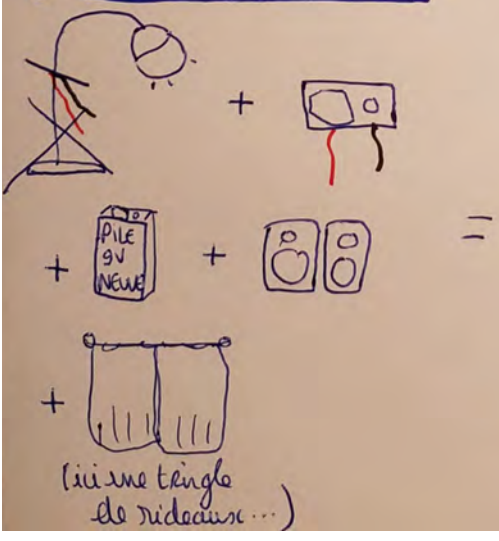 +
+
PILE
9V
NEUVE
+
=
+
(ici une tringle
de rideaux...)